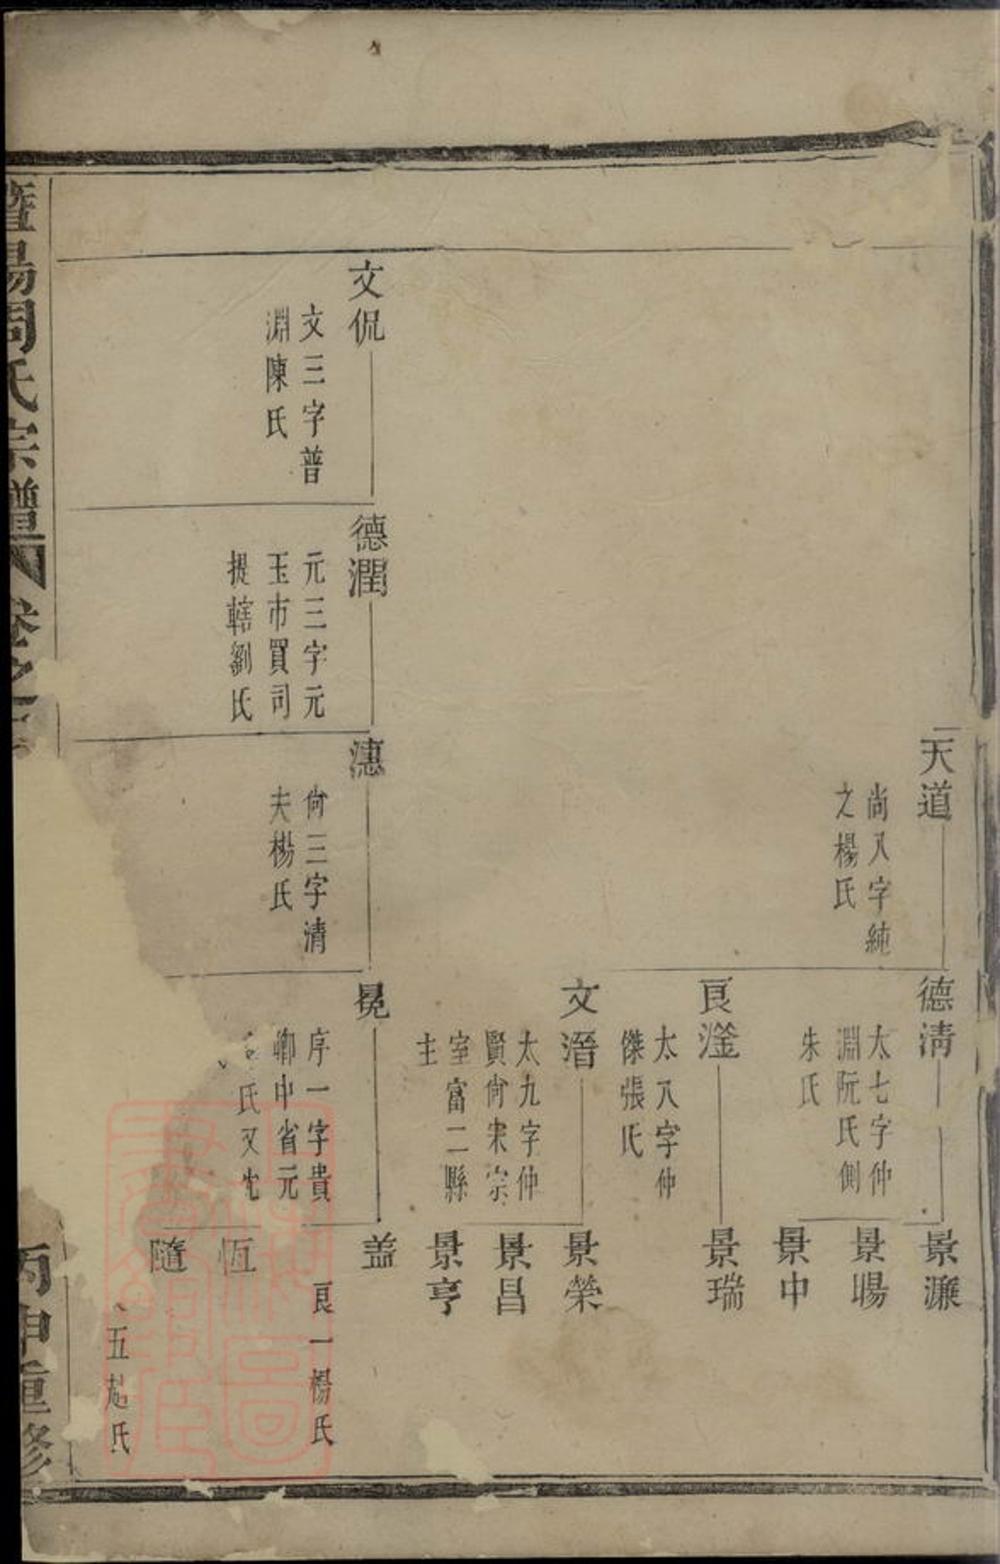 天道
尚八字純
之楊氏
德淸
太七字仲
淵阮氏側
朱氏
景濂
景暘
景中
良滏
太八字仲
傑張氏
景瑞
文溍
太九字仲
賢尚宋宗
室富二縣
主
景榮
景昌
景亨
文侃
文三字普
淵陳氏
德潤
元三字元
玉市買司
提轄劉氏
潓
尚三字清
夫楊氏
冕
序一字貴
卿中省元
氏又
盖
良一楊氏
恆
隨
五起氏
暨陽周氏宗譜
卷之
丙申重修